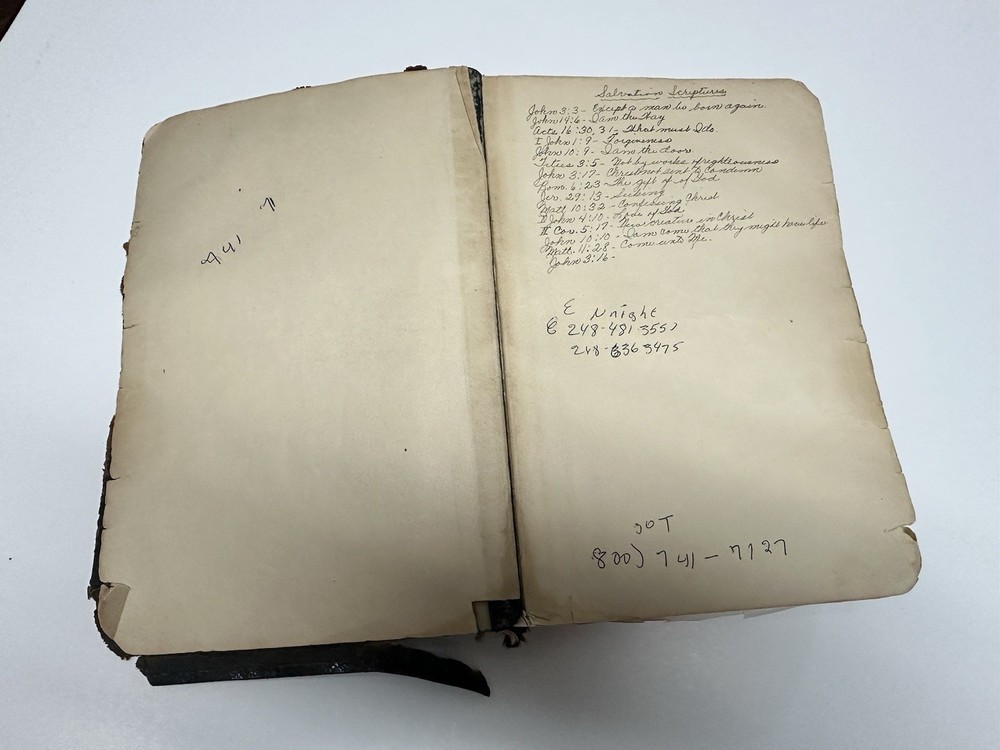 441
Salvation Scriptures
John 3:3 - Except a man be born again.
John 14:6 - I am the Way
Acts 16:30,31 - What must I do.
I John 1:9 - Forgiveness
John 10:9 - I am the door
Titus 3:5 - Not by works of righteousness
John 3:17 - Christ not sent to Condemn
Rom. 6:23 - The gift of of God
Jer. 29:13 - Seeking
Matt. 10:32 - Confessing Christ
John 4:10 - Love of God
II Cor. 5:17 - New Creature in Christ
John 10:10 - I am come that they might have life
Matt. 11:28 - Come unto Me.
John 3:16 -
E Nright
C 248-481-3557
248-636 3475
JOT
800) 741-7127